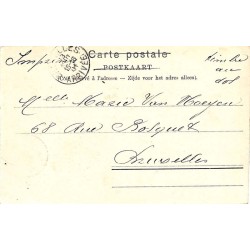 Carte postale
POSTKAART
Côté réservé à l'adresse — Zijde voor het adres alleen.
timbre
au
dos
Melle Maria Van Haegen
68 Rue Bosquet
Bruxelles